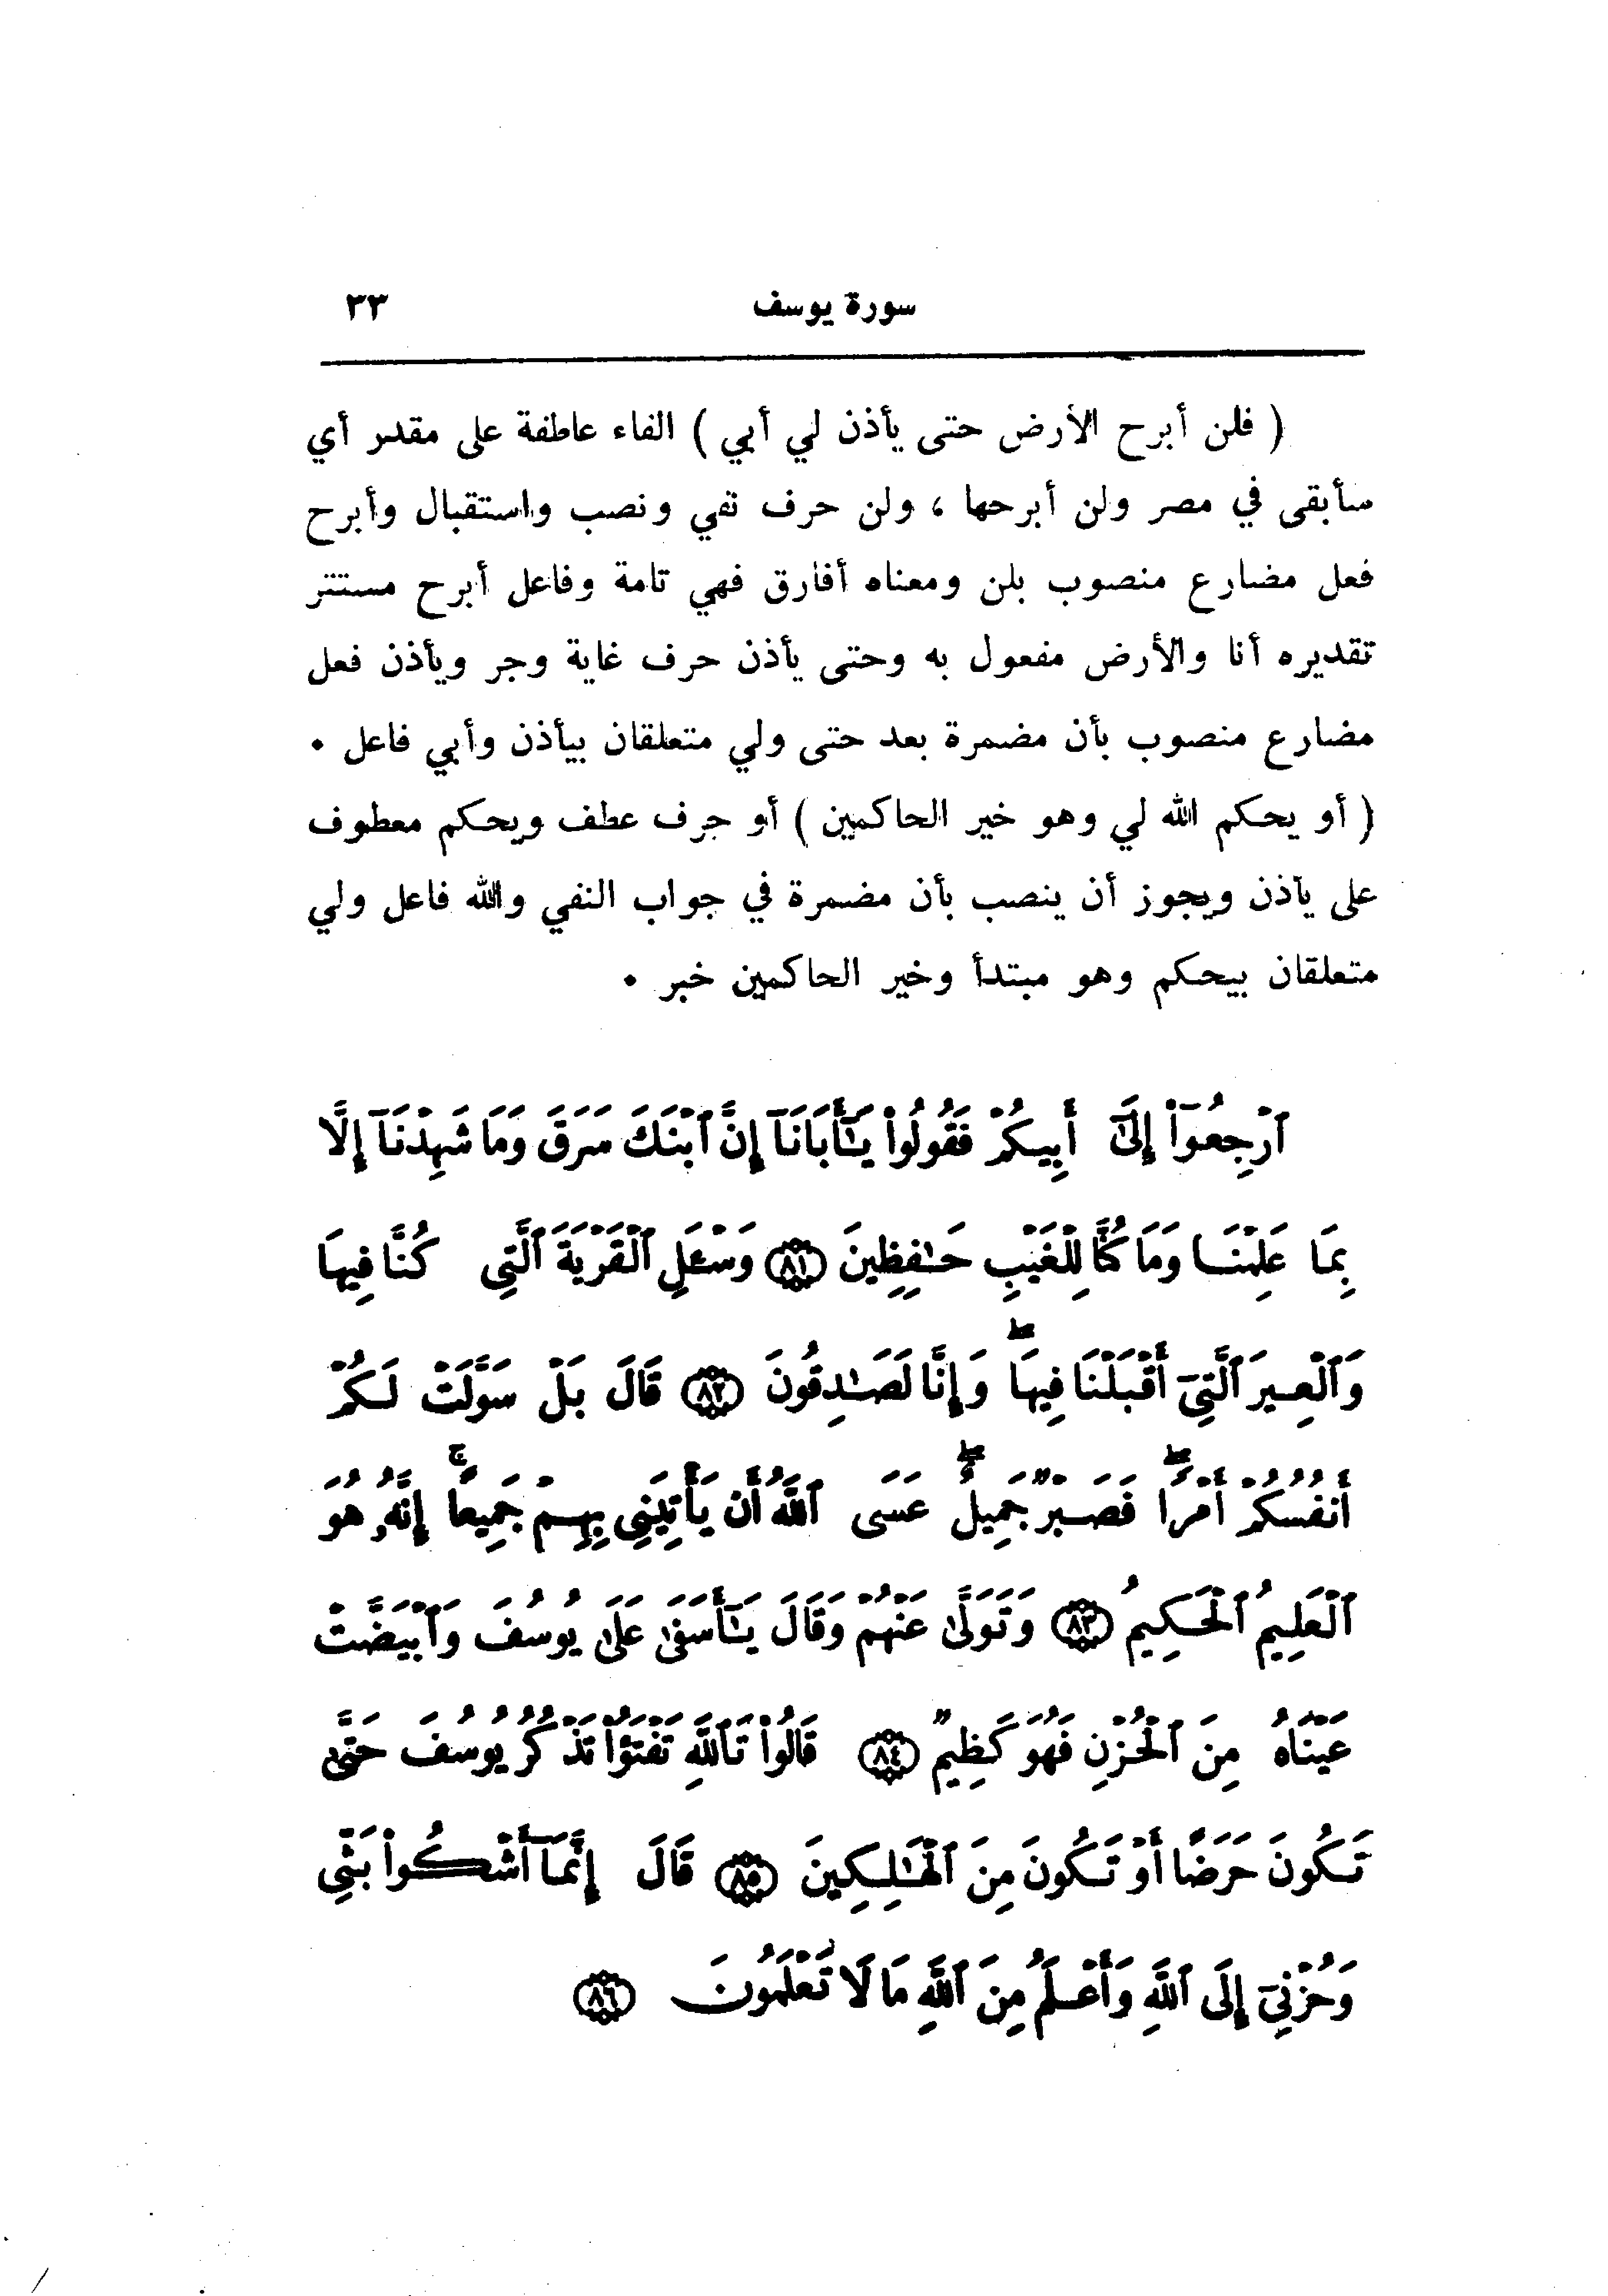 سورة يوسف ٣٣
( فلن أبرح الأرض حتى يأذن لي أبي ) الفاء عاطفة على مقدر أي
سأبقى في مصر ولن أبرحها ، ولن حرف نفي ونصب واستقبال وأبرح
فعل مضارع منصوب بلن ومعناه أفارق فهي تامة وفاعل أبرح مستتر
تقديره أنا والأرض مفعول به وحتى يأذن حرف غاية وجر ويأذن فعل
مضارع منصوب بأن مضمرة بعد حتى ولي متعلقان بيأذن وأبي فاعل ٠
( أو يحكم الله لي وهو خير الحاكمين ) أو حرف عطف ويحكم معطوف
على يأذن ويجوز أن ينصب بأن مضمرة في جواب النفي والله فاعل ولي
متعلقان بيحكم وهو مبتدأ وخير الحاكمين خبر ٠
ٱرْجِعُوٓا۟ إِلَىٰٓ أَبِيكُمْ فَقُولُوا۟ يَـٰٓأَبَانَآ إِنَّ ٱبْنَكَ سَرَقَ وَمَا شَهِدْنَآ إِلَّا
بِمَا عَلِمْنَا وَمَا كُنَّا لِلْغَيْبِ حَـٰفِظِينَ ﴿٨١﴾ وَسْـَٔلِ ٱلْقَرْيَةَ ٱلَّتِى كُنَّا فِيهَا
وَٱلْعِيرَ ٱلَّتِىٓ أَقْبَلْنَا فِيهَا ۖ وَإِنَّا لَصَـٰدِقُونَ ﴿٨٢﴾ قَالَ بَلْ سَوَّلَتْ لَكُمْ
أَنفُسُكُمْ أَمْرًا ۖ فَصَبْرٌ جَمِيلٌ ۖ عَسَى ٱللَّهُ أَن يَأْتِيَنِى بِهِمْ جَمِيعًا ۚ إِنَّهُۥ هُوَ
ٱلْعَلِيمُ ٱلْحَكِيمُ ﴿٨٣﴾ وَتَوَلَّىٰ عَنْهُمْ وَقَالَ يَـٰٓأَسَفَىٰ عَلَىٰ يُوسُفَ وَٱبْيَضَّتْ
عَيْنَاهُ مِنَ ٱلْحُزْنِ فَهُوَ كَظِيمٌ ﴿٨٤﴾ قَالُوا۟ تَٱللَّهِ تَفْتَؤُا۟ تَذْكُرُ يُوسُفَ حَتَّىٰ
تَكُونَ حَرَضًا أَوْ تَكُونَ مِنَ ٱلْهَـٰلِكِينَ ﴿٨٥﴾ قَالَ إِنَّمَآ أَشْكُوا۟ بَثِّى
وَحُزْنِىٓ إِلَى ٱللَّهِ وَأَعْلَمُ مِنَ ٱللَّهِ مَا لَا تَعْلَمُونَ ﴿٨٦﴾